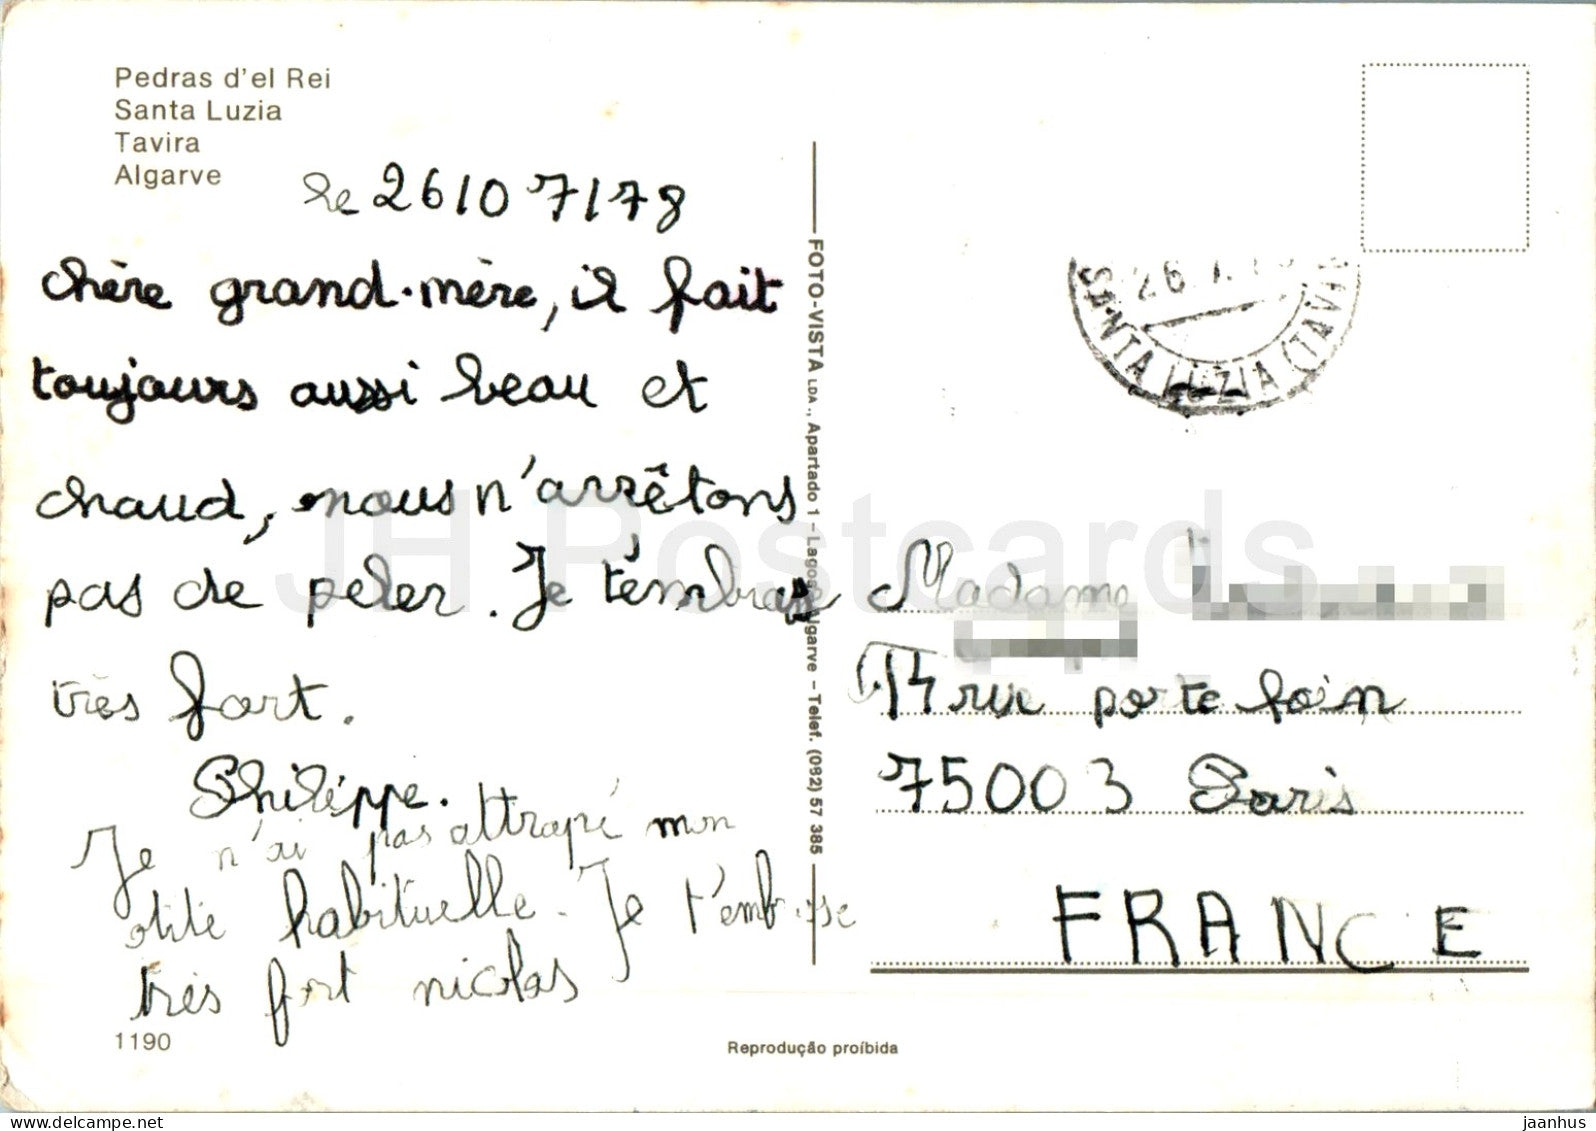 Pedras d'el Rei
Santa Luzia
Tavira
Algarve
le 26/07/78
chère grand-mère, il fait
toujours aussi beau et
chaud, nous n'arrêtons
pas de peler. Je t'embrasse
très fort.
Philippe.
Je n'ai pas attrapé mon
otite habituelle. Je t'embrasse
très fort nicolas
1190
FOTO-VISTA LDA., Apartado 1 - Lagos Algarve - Telef. (082) 57 385
Reprodução proíbida
26.7.
SANTA LUZIA (TAVIR
Madame
14 rue porte foin
75003 Paris
FRANCE
JH Postcards
delcampe.net
jaanhus